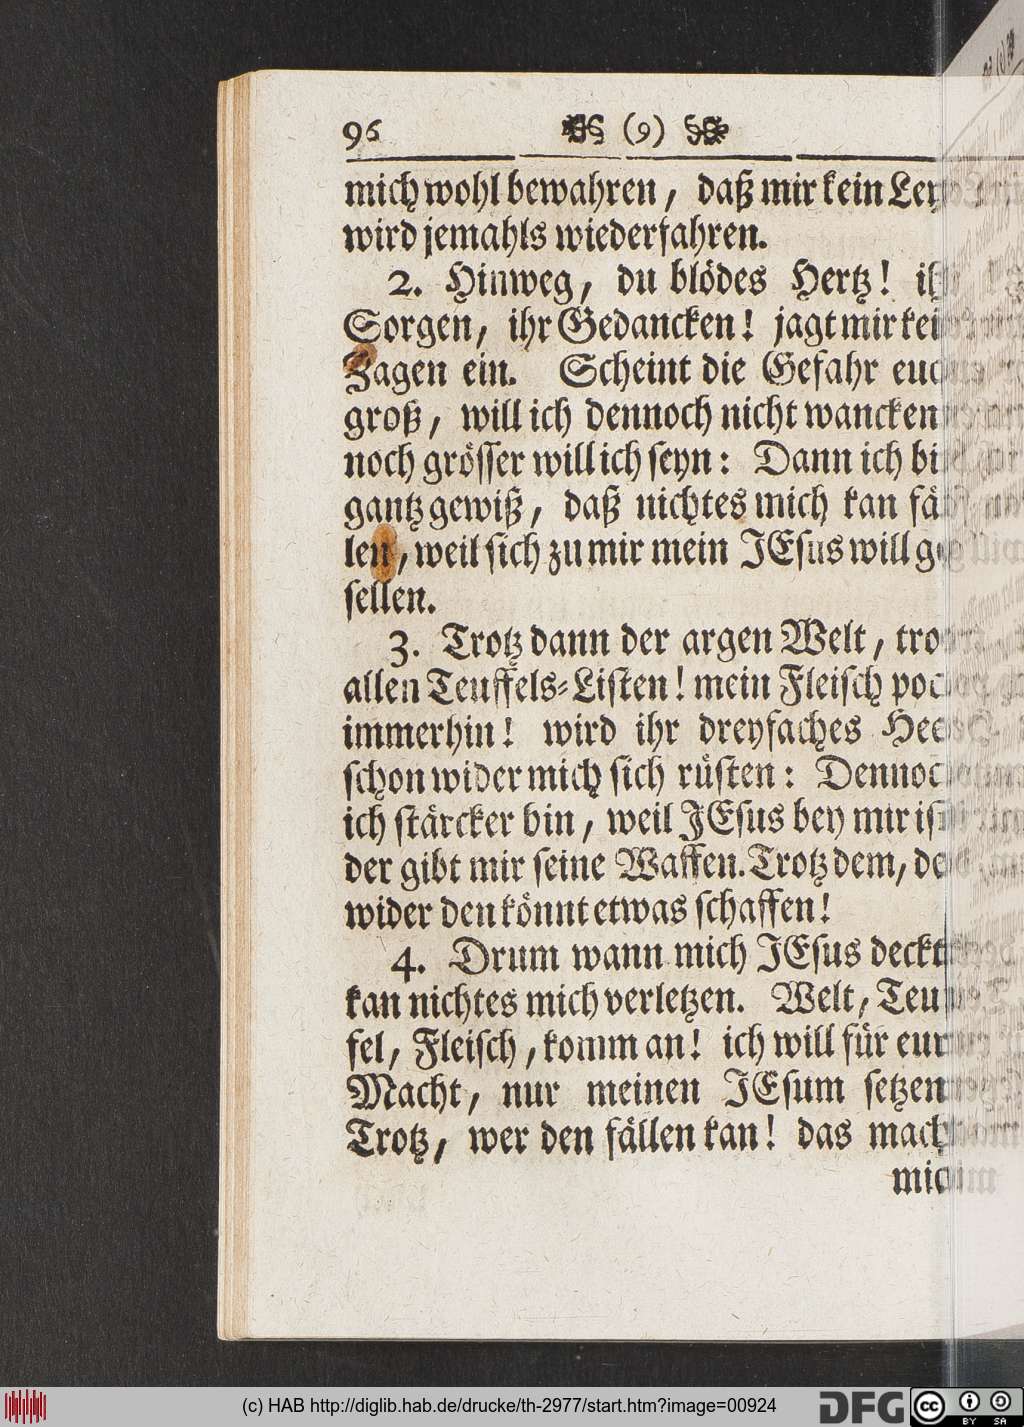 96 (9)
mich wohl bewahren, daß mir kein
wird jemahls wiederfahren.
2. Hinweg, du blödes Hertz!
Sorgen, ihr Gedancken! jagt mir
Zagen ein. Scheint die Gefahr
groß, will ich dennoch nicht wancken
noch grösser will ich seyn: Dann ich
gantz gewiß, daß nichtes mich kan
len, weil sich zu mir mein JEsus will
sellen.
3. Trotz dann der argen Welt,
allen Teuffels-Listen! mein Fleisch
immerhin! wird ihr dreyfaches
schon wider mich sich rüsten:
ich stärcker bin, weil JEsus bey mir
der gibt mir seine Waffen. Trotz dem,
wider den könnt etwas schaffen!
4. Drum wann mich JEsus deckt
kan nichtes mich verletzen. Welt, Teu
fel, Fleisch, komm an! ich will für
Macht, nur meinen JEsum setzen
Trotz, wer den fällen kan! das
(c) HAB http://diglib.hab.de/drucke/th-2977/start.htm?image=00924
DFG
cc BY SA